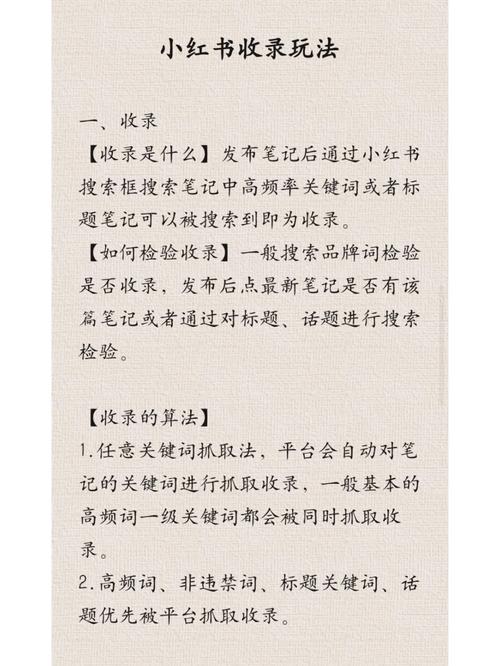 小红书收录玩法
一、收录
【收录是什么】发布笔记后通过小红书
搜索框搜索笔记中高频率关键词或者标
题笔记可以被搜索到即为收录。
【如何检验收录】一般搜索品牌词检验
是否收录，发布后点最新笔记是否有该
篇笔记或者通过对标题、话题进行搜索
检验。
【收录的算法】
1.任意关键词抓取法，平台会自动对笔
记的关键词进行抓取收录，一般基本的
高频词一级关键词都会被同时抓取收
录。
2.高频词、非违禁词、标题关键词、话
题优先被平台抓取收录。